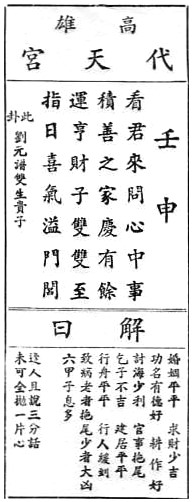 高雄
代天宮
壬申
看君來問心中事
積善之家慶有餘
運亨財子雙雙至
指日喜氣溢門閭
此卦
劉元譜雙生貴子
解曰
婚姻平平 求財少吉
功名有德好 耕作好
討海少利 官事拖尾
乞子不吉 建居平平
行舟平平 行人緩到
致病老者拖尾少者大凶
六甲子息多
逢人且說三分話
未可全拋一片心